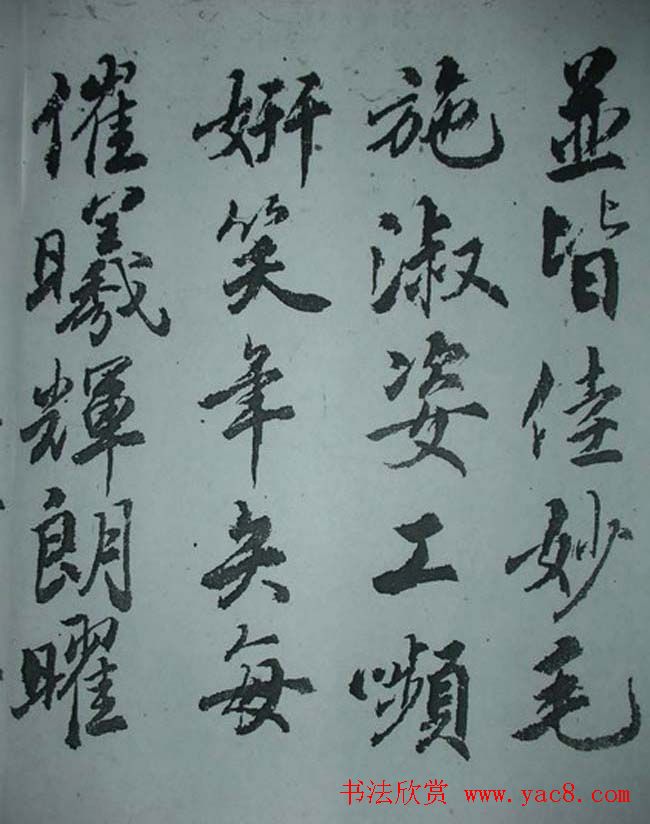 並皆佳妙毛
施淑姿工嚬
妍笑年矢每
催曦輝朗曜
书法欣赏 www.yac8.com